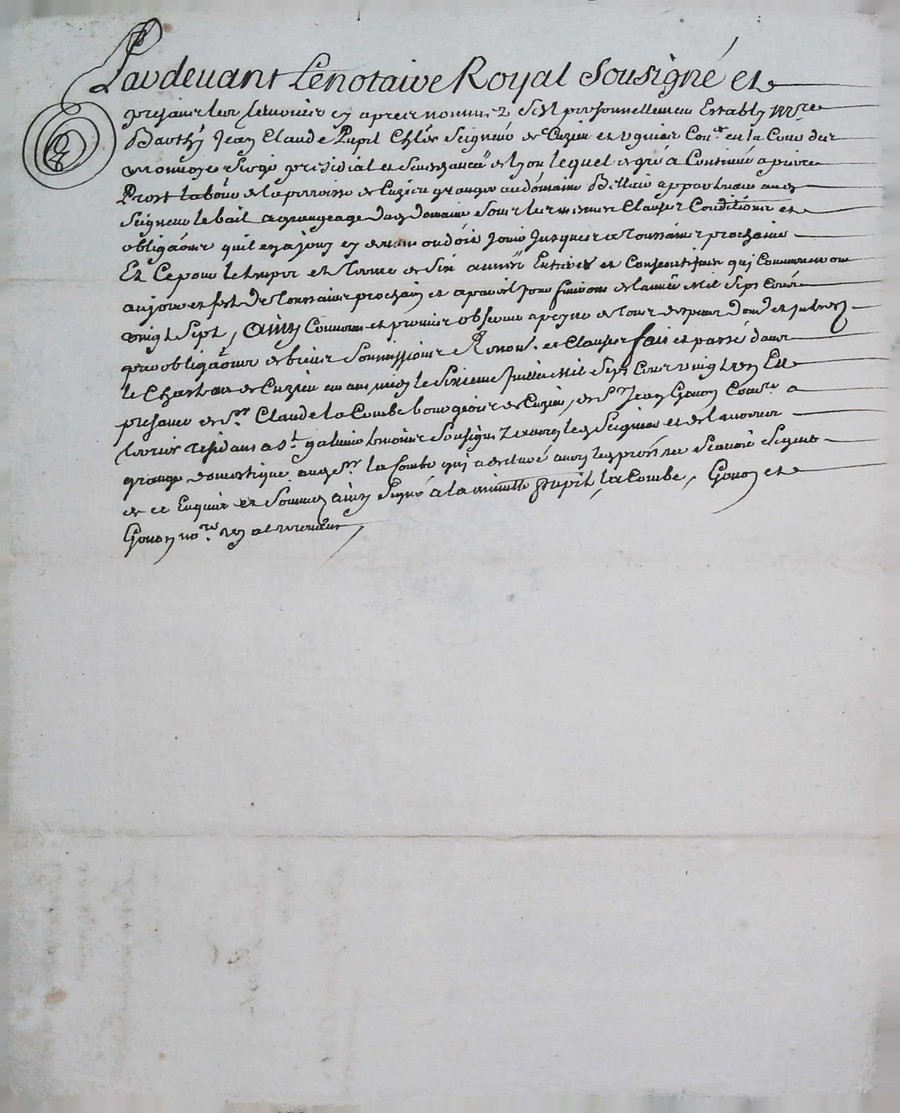 Pardevant Le notaire Royal Sousigné et
presance les temoins cy apres nommez S'est personnellement Estably Mre
Barthy Jean Claude Pupil Chler Seigneur de Cuzieu et vignier Coner en la Cour des
monnoyes Siege presidial et Senechaucée de Lyon lequel de gré a Continué a pierre
Prost laboureur de la parroisse de Cuzieu granger au domaine appartenant aud
Seigneur le bail a grangeage dud domaine Sous les mesmes Clauses Conditions et
obligaons quil en a jouy cy devant ou dois jouir Jusques a Toussaint prochaine
Et Ce pour le temps et Terme de Six années Entieres et Consecutives qui Commenceront
au jour et feste de Toussaint prochain et a pareil jour finiront de lannée Mil Sept Cent
vingt Sept, Ainsy Convenu et promis observer a peyne de Tous despens domb et interest
par obligaons de biens Soumissions Renonc. et Clauses fait et passé dans
le Chasteau de Cuzieu avant midy le Sixieme Juillet Mil Sept Cent vingt un En
presance de Sr Claude La Combe bourgeois de Cuzieu, de Sr Jean Gonon
residant a St galmier temoins Sousignez avec led Seigneur et non led
granger domestique aud Sr la Combe qui a declaré avec led prost ne Scavoir Signer
de ce Enquis et Sommez ainsy Signé a la minutte Pupil, La Combe, Gonon et
Gonon nore